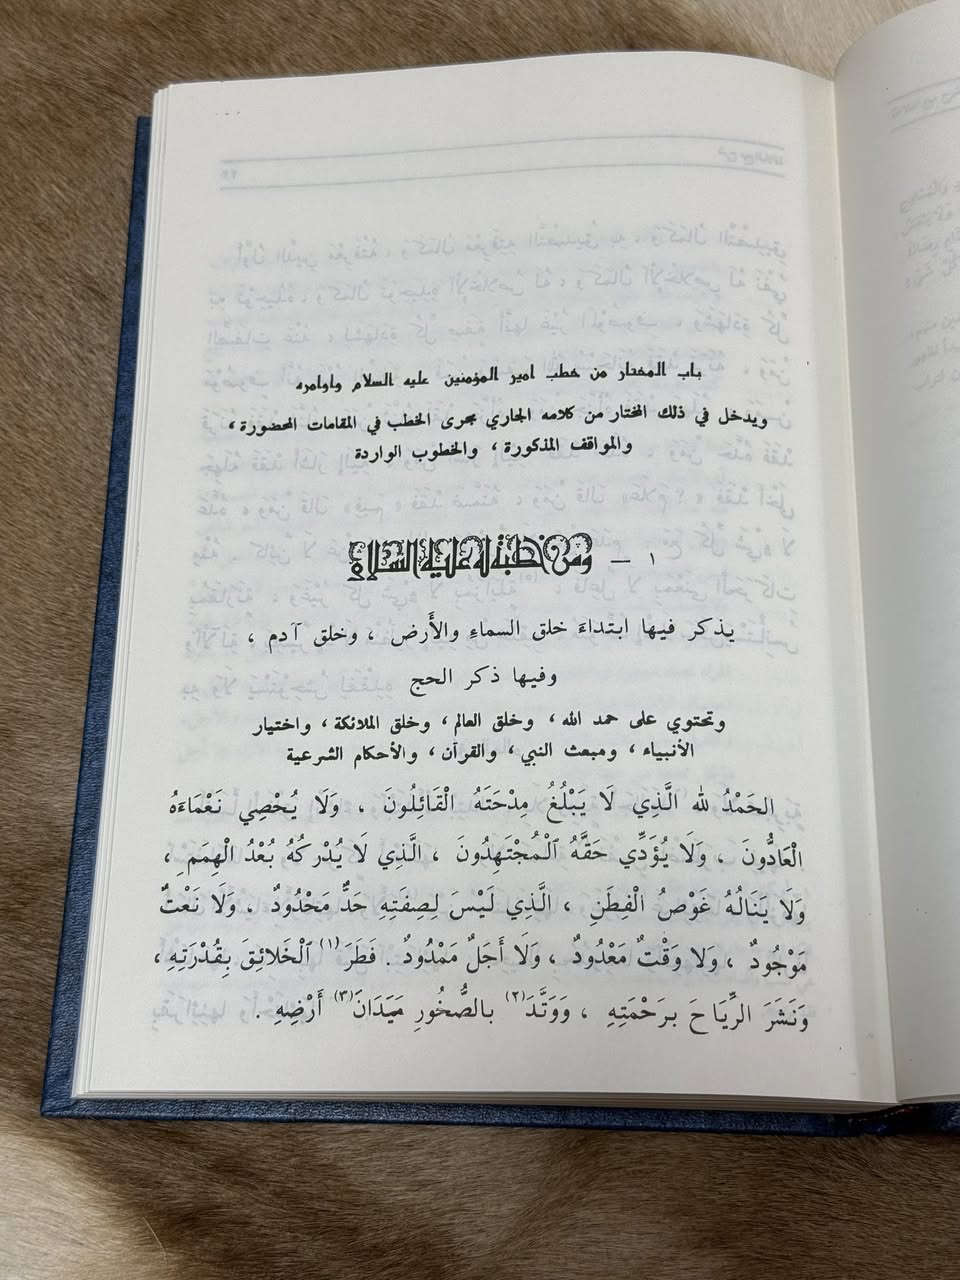 باب المختار من خطب امير المؤمنين عليه السلام واوامره
ويدخل في ذلك المختار من كلامه الجاري مجرى الخطب في المقامات المحضورة ،
والمواقف المذكورة ، والخطوب الواردة
١ — ومن خطبة له عليه السلام
يذكر فيها ابتداءَ خلق السماءِ والأَرض ، وخلق آدم ،
وفيها ذكر الحج
وتحتوي على حمد الله ، وخلق العالم ، وخلق الملائكة ، واختيار
الأنبياء ، ومبعث النبي ، والقرآن ، والأحكام الشرعية
الحَمْدُ لله الَّذِي لَا يَبْلُغُ مِدْحَتَهُ الْقَائِلُونَ ، وَلَا يُحْصِي نَعْمَاءَهُ
الْعَادُّونَ ، وَلَا يُؤَدِّي حَقَّهُ ٱلْمُجْتَهِدُونَ ، الَّذِي لَا يُدْرِكُهُ بُعْدُ الْهِمَمِ ،
وَلَا يَنَالُهُ غَوْصُ الْفِطَنِ ، الَّذِي لَيْسَ لِصِفَتِهِ حَدٌّ مَحْدُودٌ ، وَلَا نَعْتٌ
مَوْجُودٌ ، وَلا وَقْتٌ مَعْدُودٌ ، وَلَا أَجَلٌ مَمْدُودٌ . فَطَرَ(١) ٱلْخَلائِقَ بِقُدْرَتِهِ ،
وَنَشَرَ الرِّيَاحَ بِرَحْمَتِهِ ، وَوَتَّدَ(٢) بالصُّخُورِ مَيَدَانَ(٣) أَرْضِهِ .